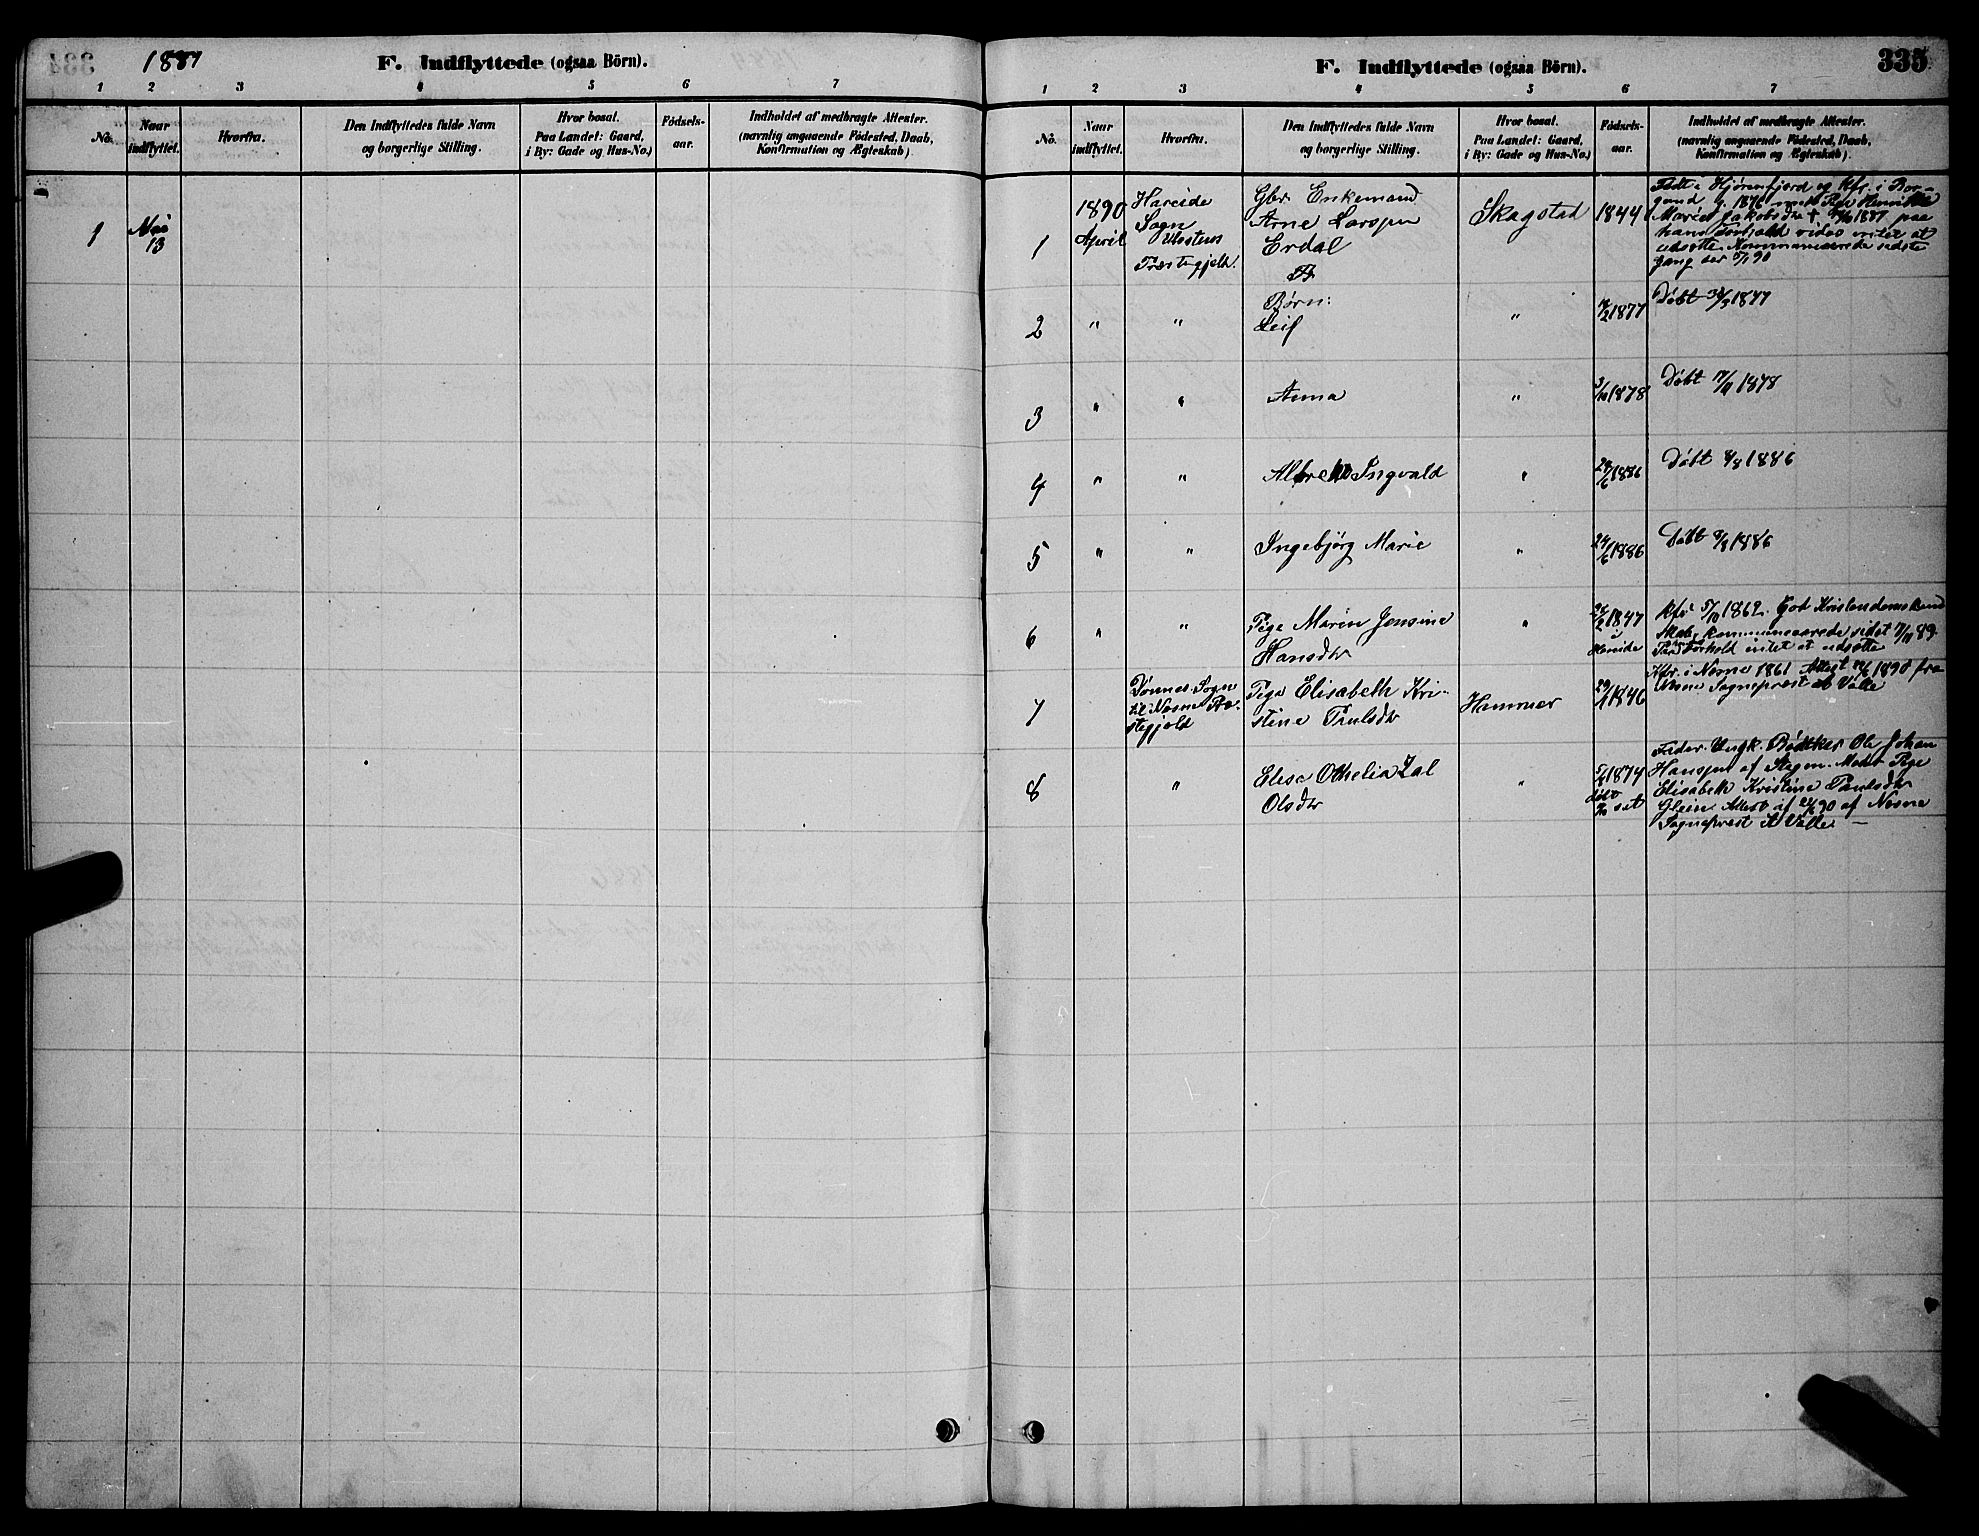 1887
F. Indflyttede (ogsaa Börn).
1 2 3 4 5 6 7
No.
Naar
indflyttet.
Hvorfra.
Den Indflyttedes fulde Navn
og borgerlige Stilling.
Hvor bosat.
Paa Landet: Gaard,
i By: Gade og Hus-No.)
Födsels-
aar.
Indholdet af medbragte Attester.
(navnlig angaaende Födested, Daab,
Konfirmation og Ægteskab).
1
Mai
13
F. Indflyttede (ogsaa Börn).
335
1 2 3 4 5 6 7
No.
Naar
indflyttet.
Hvorfra.
Den Indflyttedes fulde Navn
og borgerlige Stilling.
Hvor bosat.
Paa Landet: Gaard,
i By: Gade og Hus-No.)
Födsels-
aar.
Indholdet af medbragte Attester.
(navnlig angaaende Födested, Daab,
Konfirmation og Ægteskab).
1
1890
April
Hareide
Sogn
Ulstens
Præstegjeld.
Gbr. Enkemand
Arne Larsen
Erdal
Skagstad
1844
Født i Hjørenfjord og Kfr. i Bor-
gund g. 1876 med Pige Henrikke
Marie Jakobsdtr. 1887 paa
hans forhold vides intet at
udsætte. Kommunicerede sidste
gang der 5/1 90
2
" "
Børn:
Leif
"
1877
Døbt 1877
3
" "
Anna
"
3/10 1878
Døbt 17/11 1878
4
" "
Ingvald
"
24/6 1886
Døbt 8/8 1886
5
" "
Ingebjørg Marie
"
24/6 1886
Døbt 8/8 1886
6
" "
Pige Marin Jensine
Hansdtr
"
1847
i
Hareide
Kfr. 5/10 1862. God Kristendomskund
skab, kommunicerede sidst 17/11 89.
forhold intet at udsætte
7
Dønnes Sogn
til Nesne Præ-
stegjeld
Pige Elisabeth Kri-
stine Paulsdtr
Hammer
1846
Kfr. i Nesne 1861 Attest 1890 fra
Nesne Sogneprest A Valle
8
"
Elise Othelia Zal
Olsdtr
"
1874
døbt
Fader: Ungk. Bødtker Ole Johan
Hansen af Stagen. Moder Pige
Elisabeth Kristine Paulsdtr
Glein. Attest af 90 af Nesne
Sogneprest A Valle. —